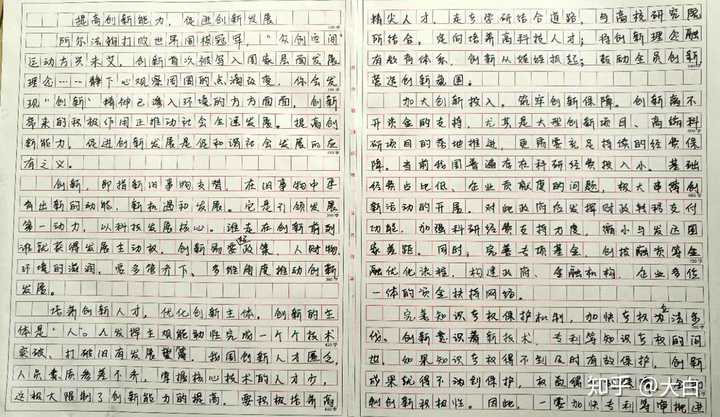 提高创新能力，促进创新发展
阿尔法狗打败世界围棋冠军，"众创空间"
运动方兴未艾，创新首次被写入国家总局发展
理念……静下心观察周围的点滴改变，你会发
现"创新"精神已渗入环境的方方面面，创新
带来的积极作用正推动社会全速发展。提高创
新能力，促进创新发展是促和谐社会发展的应
有之义。
创新，即指新旧事物交替，在旧事物中孕
育出新的动能，新机遇和发展。它是引领发展
第一动力，以科技发展核心。谁走在创新前列
谁就获得发展主动权。创新需要政策，人财物，
环境的滋润，需多管齐下、多维角度推动创新
发展。
培养创新人才，优化创新主体。创新的主
体是"人"。人发挥主观能动性完成一个个技术
突破、打破旧有发展。我国创新人才匮乏，
人员素质参差不齐，掌握核心技术的人才少，
这极大限制了创新能力的提高，要积极培养高
精尖人才，走产学研结合道路，与高校研究院
所结合，定向培养高科技人才；将创新理念融
有教育体系，创新从娃娃抓起；鼓动全员创新
营造创新氛围。
加大创新投入，筑牢创新保障。创新离不
开资金的支持，尤其是大型创新项目、高端科
研项目的落地推进，更需要充足持续的经费保
障。当前我国普遍存在科研经费投入小、基础
经费占比低、企业贡献度的问题，极大牵掣创
新运动的开展。对此政府应发挥财政转移支付
功能，加强科研经费支持力度，缩小与发达国
家差距。同时，完善专项基金、创投融资等金
融优化法治，构建政府、金融和机构、企业多位
一体的资金扶持网络。
完善知识产权保护机制，加快专权立法步
伐。创新意识着新技术、专利等知识产权的问
世，如果知识产权得不到及时有效保护，创新
成果就得不到保护，极
制创新积极性。因此，一要加快专利
知乎 @大白